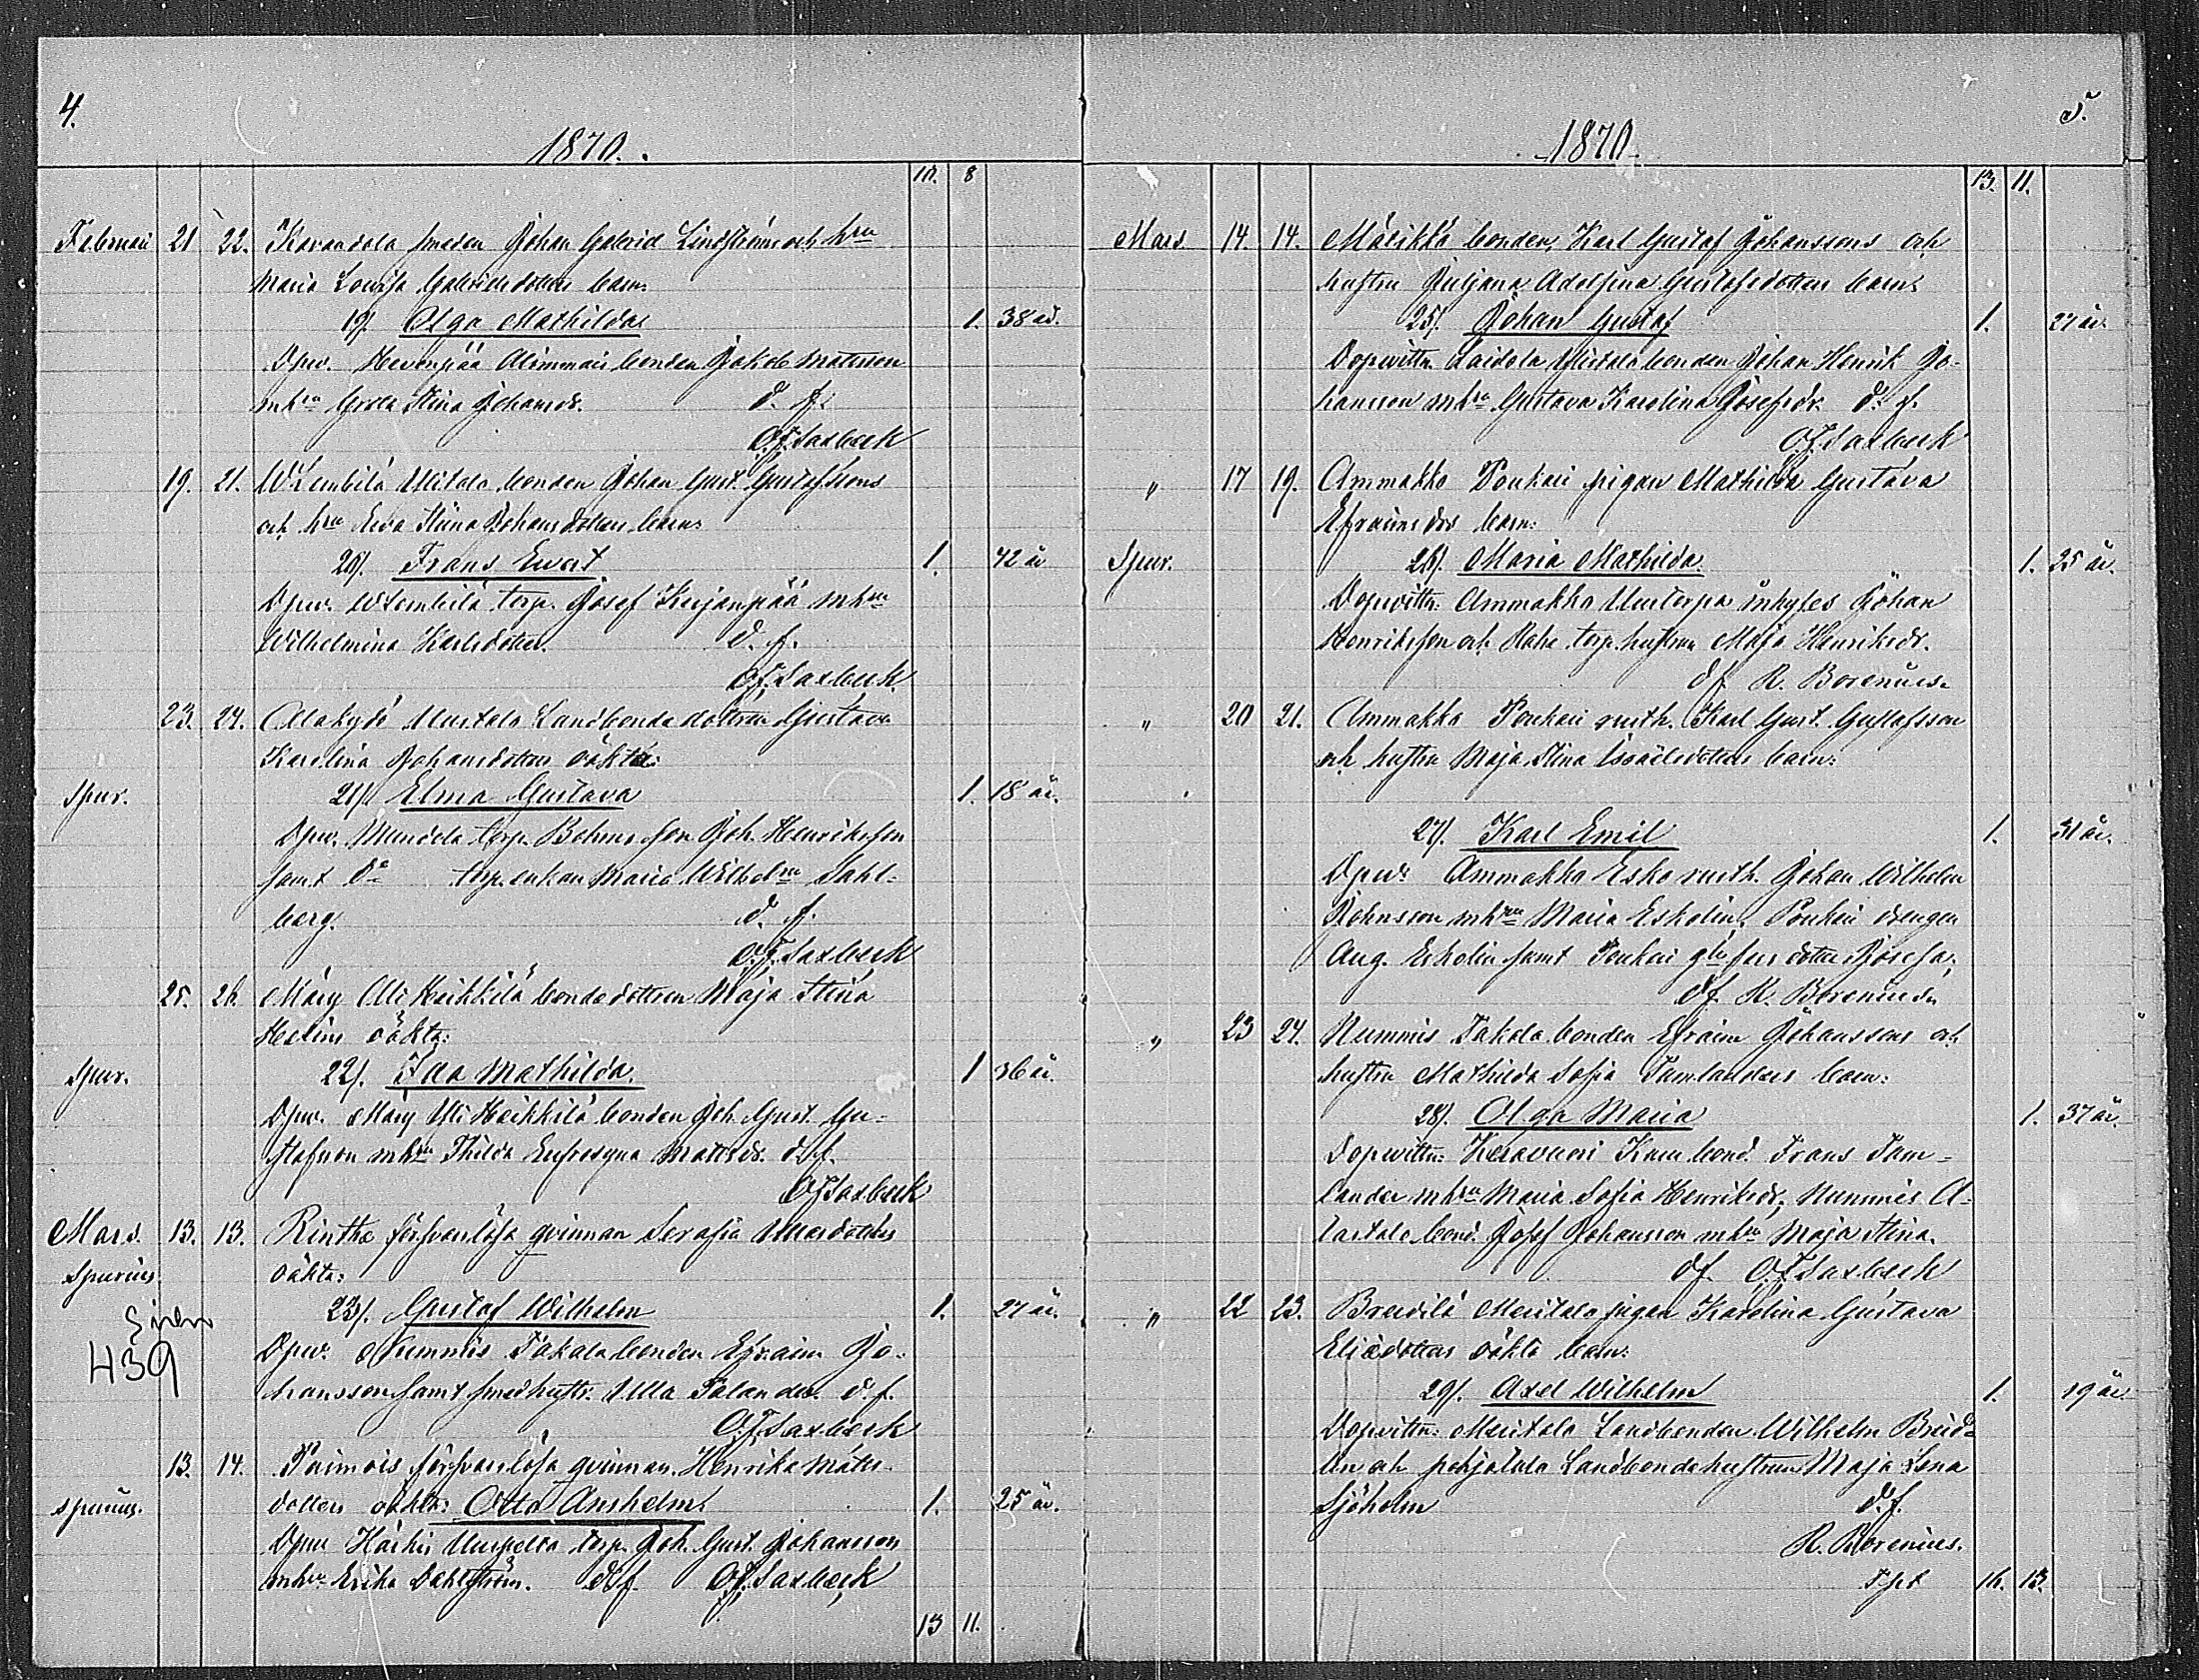 4.
1870.
10. 8
Februari 21 22. Karandola smeden Johan Gabriel Lindström och hru
Maria Lovisa Gabrielsdotters barn:
19). Olga Mathilda 1. 38 år.
Dpw. Hevonpää Alimmais bonden Jakob Matsson
mhru Greta Stina Johansdr. d. f.
O.F. Saxbeck
19. 21. Wlembilä Ylitalo bonden Johan Gust. Gustafssons
och hru Eva Stina Johansdotters barn:
20). Frans Evert 1. 42 år
Dpw. Wlembilä torp. Josef Kujanpää mhru
Wilhelmina Karlsdotter. d. f.
O.F. Saxbeck.
23. 24. Alakylä Uusitalo Landbonde dottren Gustava
Karolina Johansdotters oäkta:
Spur. 21). Elma Gustava 1. 18 år.
Dpw. torp. Johan Henriksson
samt do torp. enkan Maria Wilhelmna Sahl-
berg. d. f.
O.F. Saxbeck
25. 26. Märy Yli Heikkilä bonde dottren Maja Stina
Helins oäkta:
Spur. 22). Ida Mathilda. 1 36 år.
Dpw. Märy Yli Heikkilä bonden Joh. Gust. Gu-
stafsson mhru Thilda Eufrosyna Mattsdr. d. f.
O.F. Saxbeck
Mars. 13. 13. Rinthe försvarslösa qvinnan Serafia dotters
Spurius oäkta:
23). Gustaf Wilhelm 1. 27 år.
439
Dpw. Nummis Jakola bonden Efraim Jo-
hansson samt smedhustr. Ulla Salander. d. f.
O.F. Saxbeck
13. 14. Paimois försvarslösa qvinnan Henrika Mats-
spurius. dotters oäkta: Otto Anshelm. 1. 25 år.
Dpw torp. Joh. Gust. Johansson
mhru Erika Dahlström. d. f. O.F. Saxbeck
13 11.
5.
1870
13. 11.
Mars 14. 14. Mälikkä bonden, Karl Gustaf Johanssons och
hustru Juljana Adolfina Gustafsdotters barn:
25). Johan Gustaf 1. 27 år.
Dopvittn. Laidola Ylitalo bonden Johan Henrik Jo-
hansson mhru Gustava Karolina Josefsdr. d. f.
O.F. Saxbeck
" 17 19. Ammakko Poukari pigan Mathilda Gustava
Efraimsdrs barn:
Spur. 26). Maria Mathilda. 1. 25 år.
Dopvittn: Ammakko inhyses Johan
Henriksson och torp. hustrun Maja Henriksdr.
df R. Borenius.
" 20 21. Ammakko Poukari rusth. Karl Gust. Gustafsson
och hustru Maja Stina Israelsdotters barn:
27). Karl Emil 1. 31 år.
Dpw: Ammakko Esko rusth. Johan Wilhelm
Johnsson mhru Maria Eskolin, Poukari drengen
Aug. Eskolin samt Poukari dotter Josefa,
df. R. Borenius
" 23 24. Nummis Jakola bonden Efraim Johanssons och
hustru Mathilda Sofia Tamlanders barn:
28). Olga Maria 1. 37 år.
Dopvittn: bond. Frans Tam-
lander mhru Maria Sofia Henriksdr, Nummis A-
latalo bond. Josef Johansson mhru Maja Stina.
df. O.F. Saxbeck
" 22 23. Breidilä Meritalo pigan Karolina Gustava
Eliædotters oäkta barn:
29). Axel Wilhelm 1. 19 år.
Dopvittn: Meritalo Landbonden Wilhelm Breid-
lin och pohjatalo Landbondehustrun Maja Lena
Sjöholm d. f.
R. Borenius.
Tpt 16. 13.